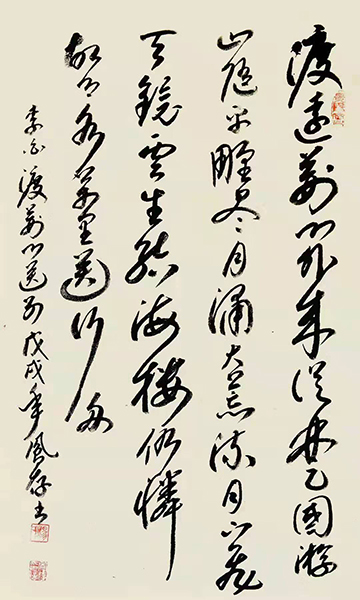 渡遠荊門外來從楚國游
山隨平野盡月涌大荒流月下飛
天鏡雲生結海樓仍憐
故鄉水萬里送行舟
李白渡荊門送別戊戌年風存书